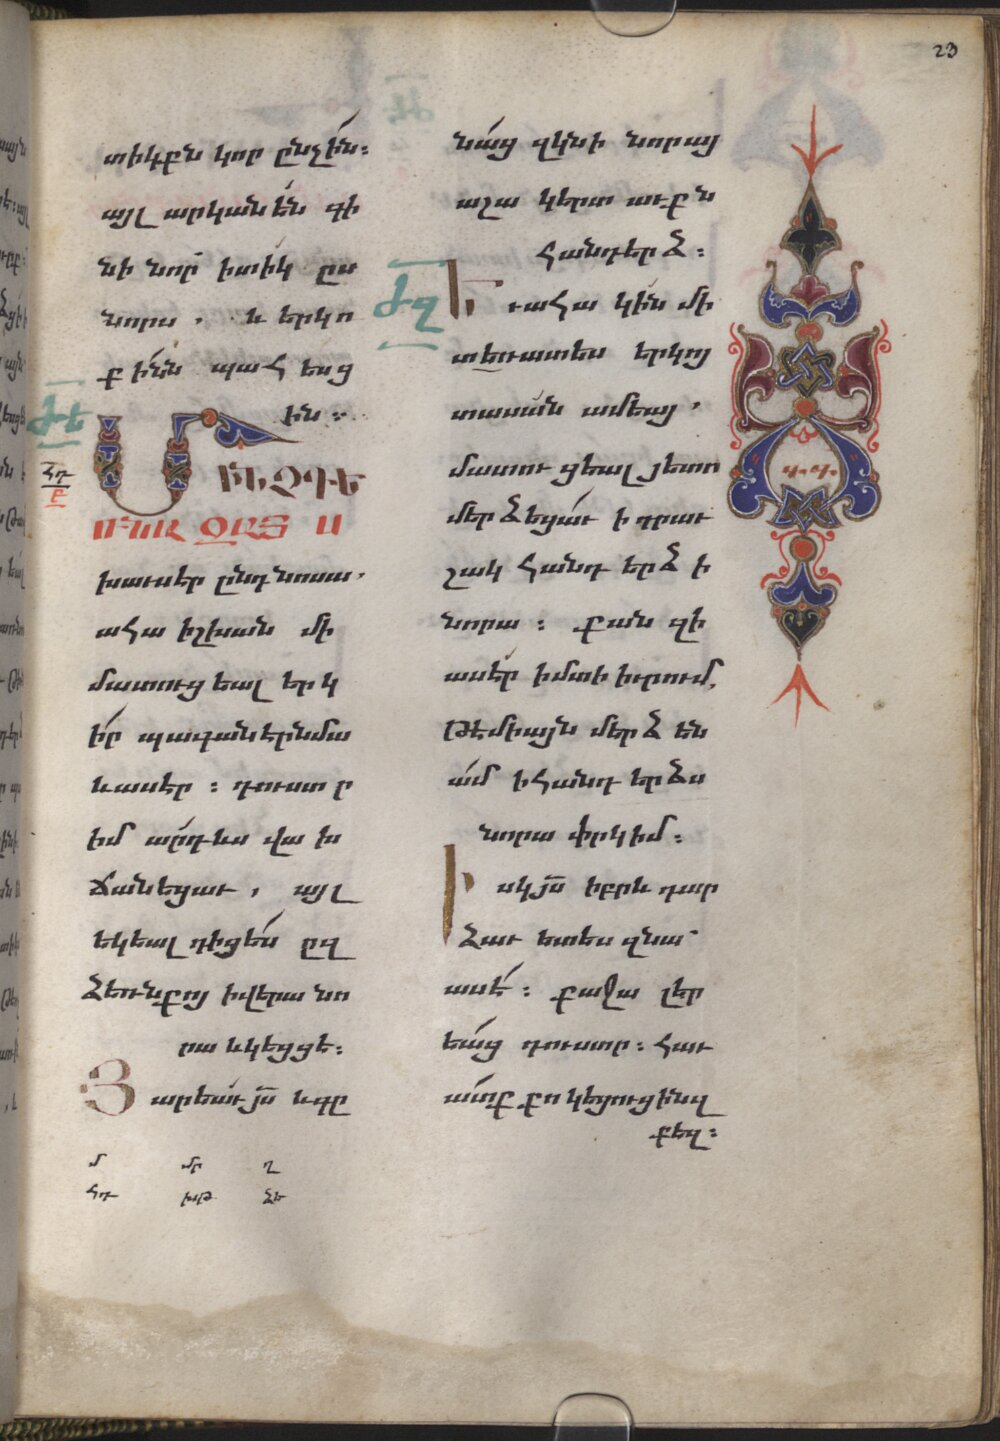 23
տիկքն կոր ընչին։
այլ արկանեն գի
նի նոր ի տիկ ըս
նորս , և երկո
քինն պահ եսց
ին ։
ժե
ՄԻՆՉԳԵ
հդ
Բ
ՌՒՌ ԶԱՅՍ Ս
խաւսէր ընդ նոսա,
ահա իշխան մի
մատուց եալ երկ
իր պագանէր նմա
և ասէր ։ դուստր
իմ արդևս վա խ
ճանեցաւ , այլ
եկեալ դիցես ըզ
ձեռն քոյ ի վերա նո
րա և կեցցէ։
Յ արեաւ յս և գը
մ մր ղ
հդ խթ ձե
նաց զկնի նորայ
աշա կերտ աւքն
հանդերձ ։
ժզ
Ե ւ ահա կին մի
տեռատես երկոյ
տասան ամեայ ,
մատու ցեալ յետո
մերձեցաւ ի դրաւ
շակ հանդ երձ ի
նորա ։ քան զի
ասէր ի մտի իւրում,
թէ միայն մերձ են
ամ ի հանդ երձս
նորա փրկիմ ։
Ի սկ յս իբրև դար
ձաւ ետես զնա
ասէ ։ քաջա լեր
եաց դուստր ։ հաւ
ատք քո կեցուցին զ
քեզ ։